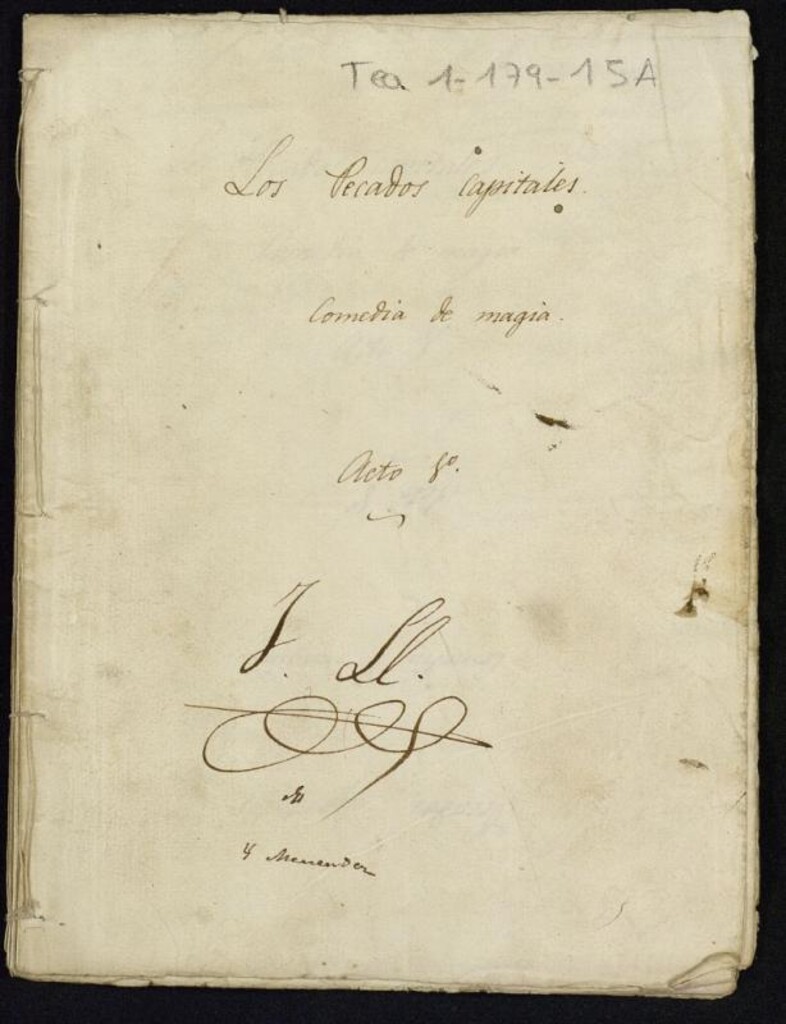 Tea 1-179-15A
Los Pecados Capitales.
Comedia de magia.
Acto 1º.
J. Ll.
Menendez